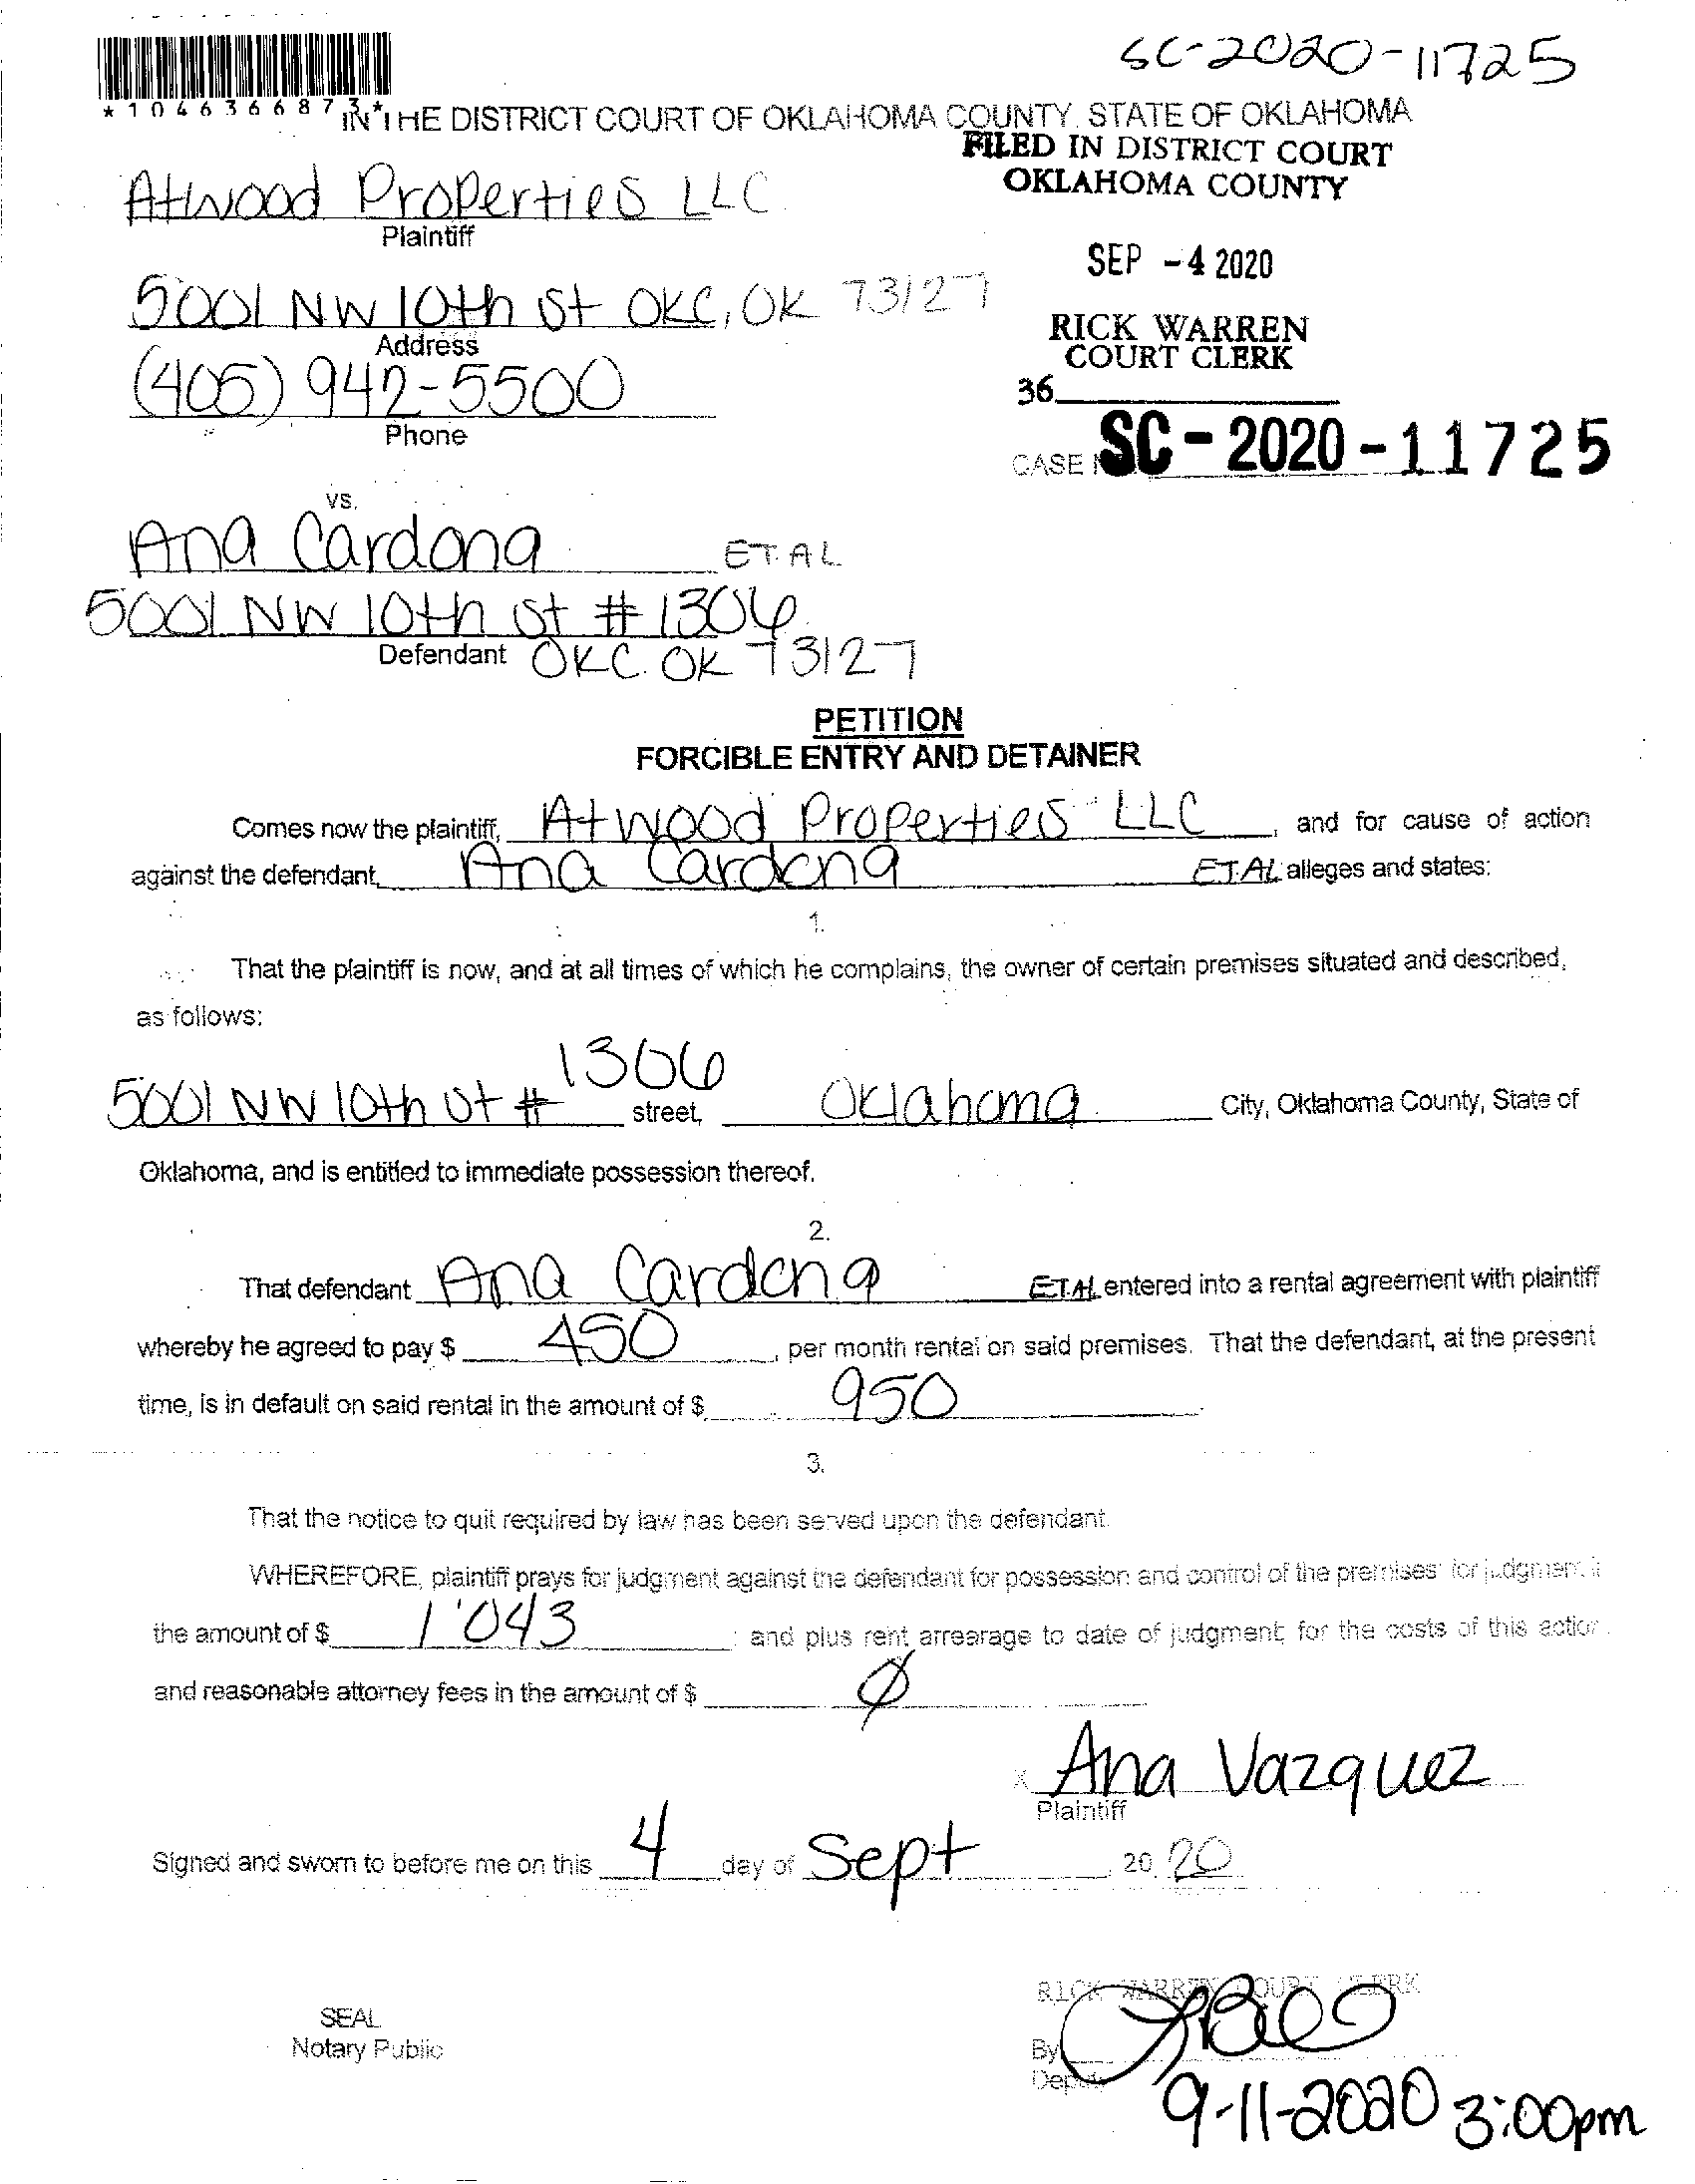 SC-2020-11725
*1046366873*
IN THE DISTRICT COURT OF OKLAHOMA COUNTY, STATE OF OKLAHOMA
FILED IN DISTRICT COURT
OKLAHOMA COUNTY
Atwood Properties LLC
Plaintiff
SEP -4 2020
5001 NW 10th St OKC, OK 73127
Address
RICK WARREN
COURT CLERK
(405) 942-5500
Phone
36
CASE SC-2020-11725
vs.
Ana Cardona ET. AL
5001 NW 10th St # 1306
Defendant OKC. OK 73127
PETITION
FORCIBLE ENTRY AND DETAINER
Comes now the plaintiff, Atwood Properties LLC, and for cause of action
against the defendant, Ana Cardona ET.AL alleges and states:
1.
That the plaintiff is now, and at all times of which he complains, the owner of certain premises situated and described,
as follows:
5001 NW 10th St # 1306 street, Oklahoma City, Oklahoma County, State of
Oklahoma, and is entitled to immediate possession thereof.
2.
That defendant Ana Cardona ET.AL entered into a rental agreement with plaintiff
whereby he agreed to pay $ 450, per month rental on said premises. That the defendant, at the present
time, is in default on said rental in the amount of $ 950.
3.
That the notice to quit required by law has been served upon the defendant.
WHEREFORE, plaintiff prays for judgment against the defendant for possession and control of the premises for judgment i
the amount of $ 1'043; and plus rent arrearage to date of judgment; for the costs of this action
and reasonable attorney fees in the amount of $ Ø
X Ana Vazquez
Plaintiff
Signed and sworn to before me on this 4 day of Sept, 20 20
RICK WARREN COURT CLERK
SEAL
Notary Public
By
Deputy
9-11-2020 3:00pm